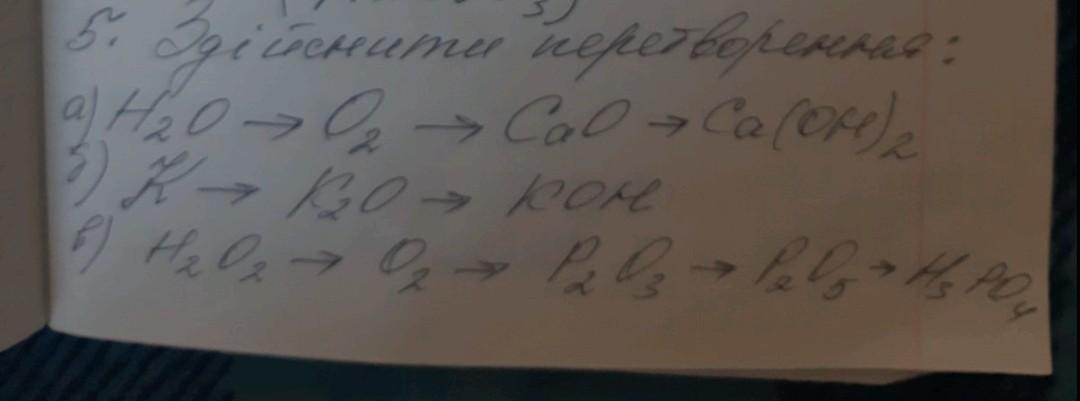 5. Здійснити перетворення:
а) H₂O → O₂ → CaO → Ca(OH)₂
б) K → K₂O → KOH
в) H₂O₂ → O₂ → P₂O₃ → P₂O₅ → H₃PO₄